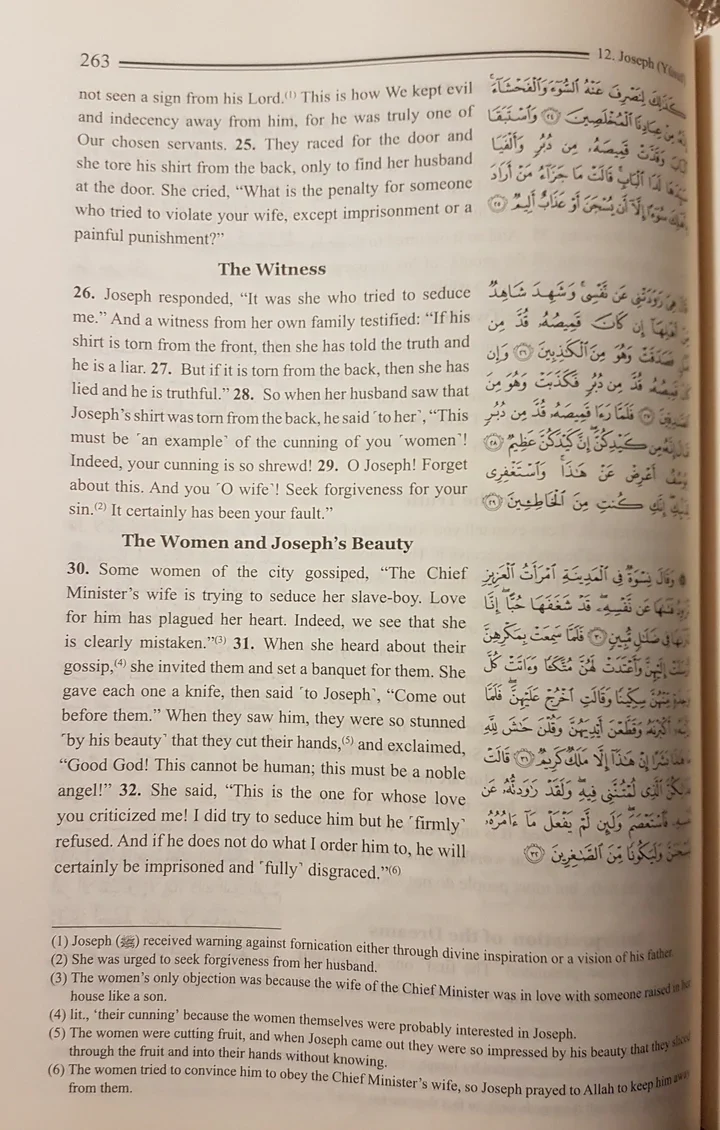 263
12. Joseph
not seen a sign from his Lord.(1) This is how We kept evil
and indecency away from him, for he was truly one of
Our chosen servants. 25. They raced for the door and
she tore his shirt from the back, only to find her husband
at the door. She cried, “What is the penalty for someone
who tried to violate your wife, except imprisonment or a
painful punishment?”
The Witness
26. Joseph responded, “It was she who tried to seduce
me.” And a witness from her own family testified: “If his
shirt is torn from the front, then she has told the truth and
he is a liar. 27. But if it is torn from the back, then she has
lied and he is truthful.” 28. So when her husband saw that
Joseph’s shirt was torn from the back, he said ˹to her˺, “This
must be ˹an example˺ of the cunning of you ˹women˺!
Indeed, your cunning is so shrewd! 29. O Joseph! Forget
about this. And you ˹O wife˺! Seek forgiveness for your
sin.(2) It certainly has been your fault.”
The Women and Joseph’s Beauty
30. Some women of the city gossiped, “The Chief
Minister’s wife is trying to seduce her slave-boy. Love
for him has plagued her heart. Indeed, we see that she
is clearly mistaken.”(3) 31. When she heard about their
gossip,(4) she invited them and set a banquet for them. She
gave each one a knife, then said ˹to Joseph˺, “Come out
before them.” When they saw him, they were so stunned
˹by his beauty˺ that they cut their hands,(5) and exclaimed,
“Good God! This cannot be human; this must be a noble
angel!” 32. She said, “This is the one for whose love
you criticized me! I did try to seduce him but he ˹firmly˺
refused. And if he does not do what I order him to, he will
certainly be imprisoned and ˹fully˺ disgraced.”(6)
كَذَٰلِكَ لِنَصْرِفَ عَنْهُ ٱلسُّوٓءَ وَٱلْفَحْشَآءَ
مِنْ عِبَادِنَا ٱلْمُخْلَصِينَ ٢٤ وَٱسْتَبَقَا
وَقَدَّتْ قَمِيصَهُۥ مِن دُبُرٍ وَأَلْفَيَا
لَدَا ٱلْبَابِ قَالَتْ مَا جَزَآءُ مَنْ أَرَادَ
سُوٓءًا إِلَّآ أَن يُسْجَنَ أَوْ عَذَابٌ أَلِيمٌ ٢٥
هِىَ رَٰوَدَتْنِى عَن نَّفْسِى وَشَهِدَ شَاهِدٌ
إِن كَانَ قَمِيصُهُۥ قُدَّ مِن
فَصَدَقَتْ وَهُوَ مِنَ ٱلْكَٰذِبِينَ ٢٦ وَإِن
قُدَّ مِن دُبُرٍ فَكَذَبَتْ وَهُوَ مِنَ
٢٧ فَلَمَّا رَءَا قَمِيصَهُۥ قُدَّ مِن دُبُرٍ
مِن كَيْدِكُنَّ إِنَّ كَيْدَكُنَّ عَظِيمٌ ٢٨
أَعْرِضْ عَنْ هَٰذَا وَٱسْتَغْفِرِى
إِنَّكِ كُنتِ مِنَ ٱلْخَاطِـِٔينَ ٢٩
وَقَالَ نِسْوَةٌ فِى ٱلْمَدِينَةِ ٱمْرَأَتُ ٱلْعَزِيزِ
عَن نَّفْسِهِۦ قَدْ شَغَفَهَا حُبًّا إِنَّا
فِى ضَلَٰلٍ مُّبِينٍ ٣٠ فَلَمَّا سَمِعَتْ بِمَكْرِهِنَّ
إِلَيْهِنَّ وَأَعْتَدَتْ لَهُنَّ مُتَّكَـًٔا وَءَاتَتْ كُلَّ
مِّنْهُنَّ سِكِّينًا وَقَالَتِ ٱخْرُجْ عَلَيْهِنَّ فَلَمَّا
أَكْبَرْنَهُۥ وَقَطَّعْنَ أَيْدِيَهُنَّ وَقُلْنَ حَٰشَ لِلَّهِ
بَشَرًا إِنْ هَٰذَآ إِلَّا مَلَكٌ كَرِيمٌ ٣١ قَالَتْ
ٱلَّذِى لُمْتُنَّنِى فِيهِ وَلَقَدْ رَٰوَدتُّهُۥ عَن
فَٱسْتَعْصَمَ وَلَئِن لَّمْ يَفْعَلْ مَآ ءَامُرُهُۥ
وَلَيَكُونًا مِّنَ ٱلصَّٰغِرِينَ ٣٢
(1) Joseph (ﷺ) received warning against fornication either through divine inspiration or a vision of his father.
(2) She was urged to seek forgiveness from her husband.
(3) The women’s only objection was because the wife of the Chief Minister was in love with someone raised in her
house like a son.
(4) lit., ‘their cunning’ because the women themselves were probably interested in Joseph.
(5) The women were cutting fruit, and when Joseph came out they were so impressed by his beauty that they sliced
through the fruit and into their hands without knowing.
(6) The women tried to convince him to obey the Chief Minister’s wife, so Joseph prayed to Allah to keep him away
from them.